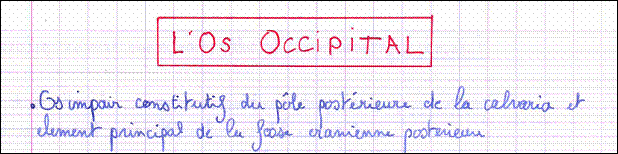 L'OS OCCIPITAL
. Os impair constitutif du pôle postérieure de la calvaria et
element principal de la fosse cranienne posterieure